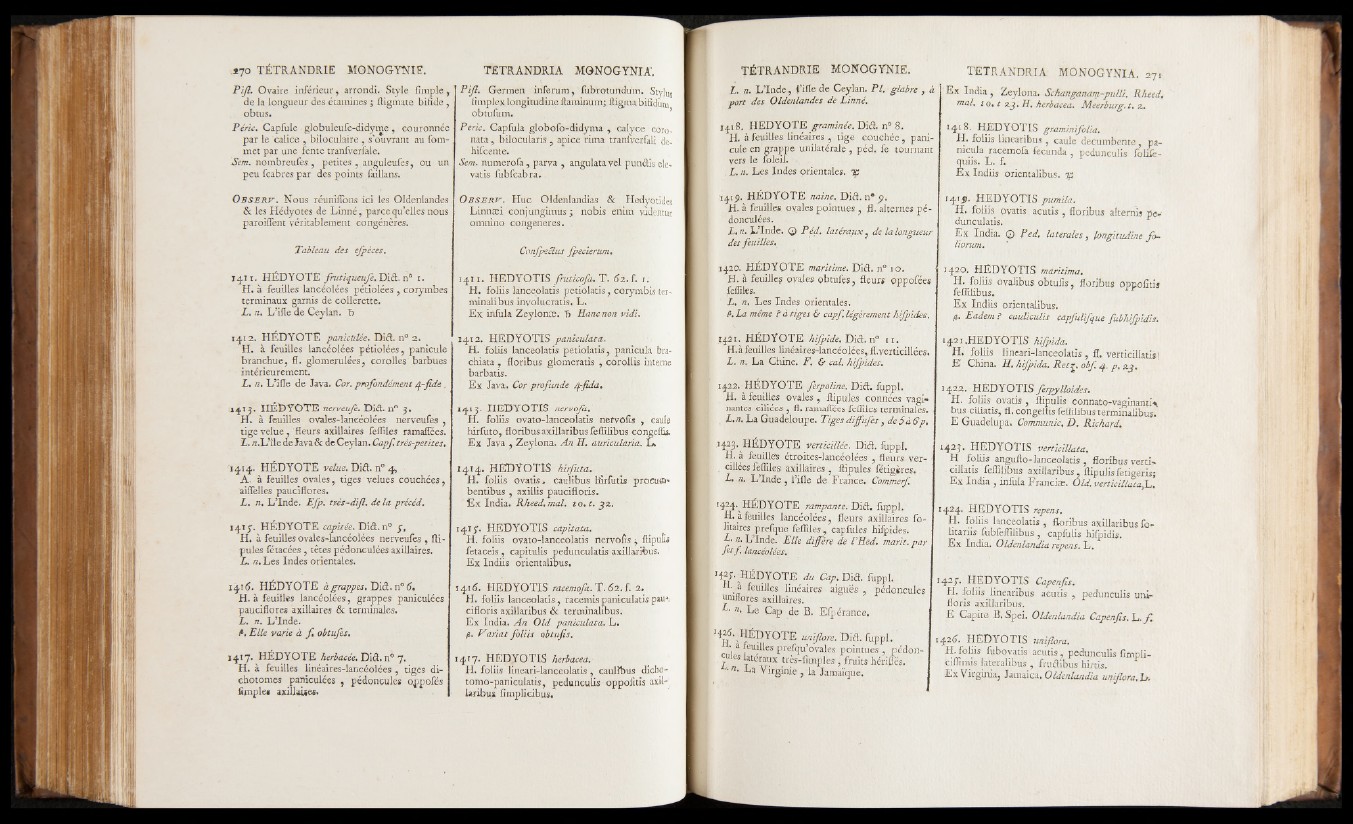 270 TÉTRANDRIE MONOGYNIE.
Pist. Ovaire inférieur, arrondi. Style simple,
de la longueur des étamines ; stigmate bifide,
obtus.
Péric. Capsule globuleuse-didyme, couronnée
par le calice, biloculaire, s'ouvrant au som-
met par une fente transversale.
Sem. nombreuses, petites, anguleuses, ou un
peu scabres par des points saillans.
OBSERV. Nous réunissons ici les Oldenlandes
& les Hédyotes de Linné, parce qu'elles nous
paroissent véritablement congénères.
Tableau des espèces.
1411. HÉDYOTE frutiqueuse. Dict. n° 1.
H. à feuilles lancéolées pétiolées, corymbes
terminaux garnis de collerette.
L. n. L'isle de Ceylan. ♄
1412. HÉDYOTE paniculée. Dict. n° 2.
H. à feuilles lancéolées pétiolées, panicule
branchue, fl. glomerulées, corolles barbues
intérieurement.
L. n. L'isle de Java. Cor. profondément 4-fide.
1413. HÉDYOTE nerveuse. Dict. n° 3.
H. à feuilles ovales-lancéolées nerveuses,
tige velue, fleurs axillaires sessiles ramassées.
L. n. L'isle de Java & de Ceylan. Caps. très-petites.
1414. HÉDYOTE velue. Dict. n° 4.
A. à feuilles ovales, tiges velues couchées,
aisselles pauciflores.
L. n. L'Inde. Esp. très-dist. de la précéd.
1415. HÉDYOTE capitée. Dict. n° 5.
H. à feuilles ovales-lancéolées nerveuses, sti-
pules sétacées, têtes pédonculées axillaires.
L. n. Les Indes orientales.
1416. HÉDYOTE à grappes. Dict. n° 6.
H. à feuilles lancéolées, grappes paniculées
pauciflores axillaires & terminales.
L. n. L'Inde.
β. Elle varie à f. obtuses.
1417. HÉDYOTE herbacée. Dict. n° 7.
H. à feuilles linéaires-lancéolées, tiges di-
chotomes paniculées, pédoncules opposés
simples axillaires.
TETRANDRIA MONOGYNIA.
Pist. Germen inferum, subrotundum. Stylus
simplex longitudine staminum; stigma bifidum,
obtusum.
Peric. Capsula globoso-didyma, calyce coro-
nata, bilocularis, apice rima transversali de-
hiscente.
Sem. numerosa, parva, angulata vel punctis ele-
vatis subscabra.
OBSERV. Huc Oldenlandias & Hedyotides
Linnæi conjungimus ; nobis enim videntur
omnino congeneres.
Conspectus specierum.
1411. HEDYOTIS fruticosa. T. 62. f. 1.
H. foliis lanceolatis petiolatis, corymbis ter-
minalibus involucratis. L.
Ex insula Zeylonæ. ♄ Hanc non vidi.
1412. HEDYOTIS paniculata.
H. foliis lanceolatis petiolatis, panicula bra-
chiata, floribus glomeratis, corollis interne
barbatis.
Ex Java. Cor profunde 4-fida.
1413. HEDYOTIS nervosa.
H. foliis ovato-lanceolatis nervosis, caule
hirsuto, floribus axillaribus sessilibus congestis.
Ex Java, Zeylona. An H. auricularia. L.
1414. HEDYOTIS hirsuta.
H. foliis ovatis, caulibus hirsutis procum-
bentibus, axillis paucifloris.
Ex India. Rheed. mal. 10. t. 32.
1415. HEDYOTIS capitata.
H. foliis ovato-lanceolatis nervosis, stipulis
setaceis, capitulis pedunculatis axillaribus.
Ex Indiis orientalibus.
1416. HEDYOTIS racemosa. T. 62. f. 2.
H. foliis lanceolatis, racemis paniculatis pau-
cifloris axillaribus & terminalibus.
Ex India. An Old. paniculata. L.
β. Variat foliis obtusis.
1417. HEDYOTIS herbacea.
H. foliis lineari-lanceolatis, caulibus dicho-
tomo-paniculatis, pedunculis oppositis axil-
laribus simplicibus.
TÉTRANDRIE MONOGYNIE.
L. n. L'Inde, l'isle de Ceylan. Pl. glabre, à
port des Oldenlandes de Linné.
1418. HEDYOTE graminée. Dict. n° 8.
H. à feuilles linéaires, tige couchée, pani-
cule en grappe unilatérale, péd. se tournant
vers le soleil.
L. n. Les Indes orientales. ♃
1419. HÉDYOTE naine. Dict. n° 9.
H. à feuilles ovales pointues, fl. alternes pé-
donculées.
L. n. L'Inde. ☉ Péd. latéraux, de la longueur
des feuilles.
1420. HÉDYOTE maritime. Dict. n° 10.
H. à feuilles ovales obtuses, fleurs opposées
sessiles.
L. n. Les Indes orientales.
β. La même ? à tiges & caps. légèrement hispides.
1421. HÉDYOTE hispide. Dict. n° 11.
H. à feuilles linéaires-lancéolées, fl. verticillées.
L. n. La Chine. F. & cal. hispides.
1422. HÉDYOTE serpoline. Dict. suppl.
H. à feuilles ovales, stipules connées vagi-
nantes ciliées, fl. ramassées sessiles terminales.
L. n. La Guadeloupe. Tiges diffuses, de 5 à 6 p.
1423. HÉDYOTE verticillée. Dict. suppl.
H. à feuilles étroites-lancéolées, fleurs ver-
cillées sessiles axillaires, stipules sétigères.
L. n. L'Inde, l'isle de France. Commers.
1424. HÉDYOTE rampante. Dict. suppl.
H. à feuilles lancéolées, fleurs axillaires so-
litaires presque sessiles, capsules hispides.
L. n. L'Inde. Elle diffère de l'Hed. marit. par
ses f. lancéolées.
1425. HÉDYOTE du Cap. Dict. suppl.
H. à feuilles linéaires aiguës, pédoncules
uniflores axillaires.
L. n. Le Cap de B. Espérance.
1426. HÉDYOTE uniflore. Dict. suppl.
H. à feuilles presqu'ovales pointues, pédon-
cules latéraux très-simples, fruits hérissés.
L. n. La Virginie, la Jamaïque.
TETRANDRIA MONOGYNIA. 271
Ex India, Zeylona. Schanganam-pulli. Rheed.
mal. 10. t. 23. H. herbacea. Meerburg. t. 2.
1418. HEDYOTIS graminifolia.
H. foliis linearibus, caule decumbente, pa-
nicula racemosa secunda, pedunculis solise-
quiis. L. f.
Ex Indiis orientalibus. ♃
1419. HEDYOTIS pumila.
H. foliis ovatis acutis, floribus alternis pe-
dunculatis.
Ex India. ☉ Ped. laterales, longitudine fo-
liorum.
1420. HEDYOTIS maritima.
H. foliis ovalibus obtusis, floribus oppositis
sessilibus.
Ex Indiis orientalibus.
β. Eadem ? cauliculis capsulisque subhispidis.
1421. HEDYOTIS hispida.
H. foliis lineari-lanceolatis, fl. verticillatis
E China. H. hispida. Retz. obs. 4. p. 23.
1422. HEDYOTIS serpylloides.
H. foliis ovatis, stipulis connato-vaginanti-
bus ciliatis, fl. congestis sessilibus terminalibus.
E Guadelupa. Communic. D. Richard.
1423. HEDYOTIS verticillata.
H foliis angusto-lanceolatis, floribus verti-
cillatis sessilibus axillaribus, stipulis setigeris;
Ex India, insula Franciæ. Old. verticillata, L.
1424. HEDYOTIS repens.
H. foliis lanceolatis, floribus axillaribus so-
litariis subsessilibus, capsulis hispidis.
Ex India. Oldenlandia repens. L.
1425. HEDYOTIS Capensis.
H. foliis linearibus acutis, pedunculis uni-
floris axillaribus.
E Capite B. Spei. Oldenlandia Capensis. L. f.
1426. HEDYOTIS uniflora.
H. foliis subovatis acutis, pedunculis simpli-
cissimis lateralibus, fructibus hirtis.
Ex Virginia, Jamaica. Oldenlandia uniflora. L.